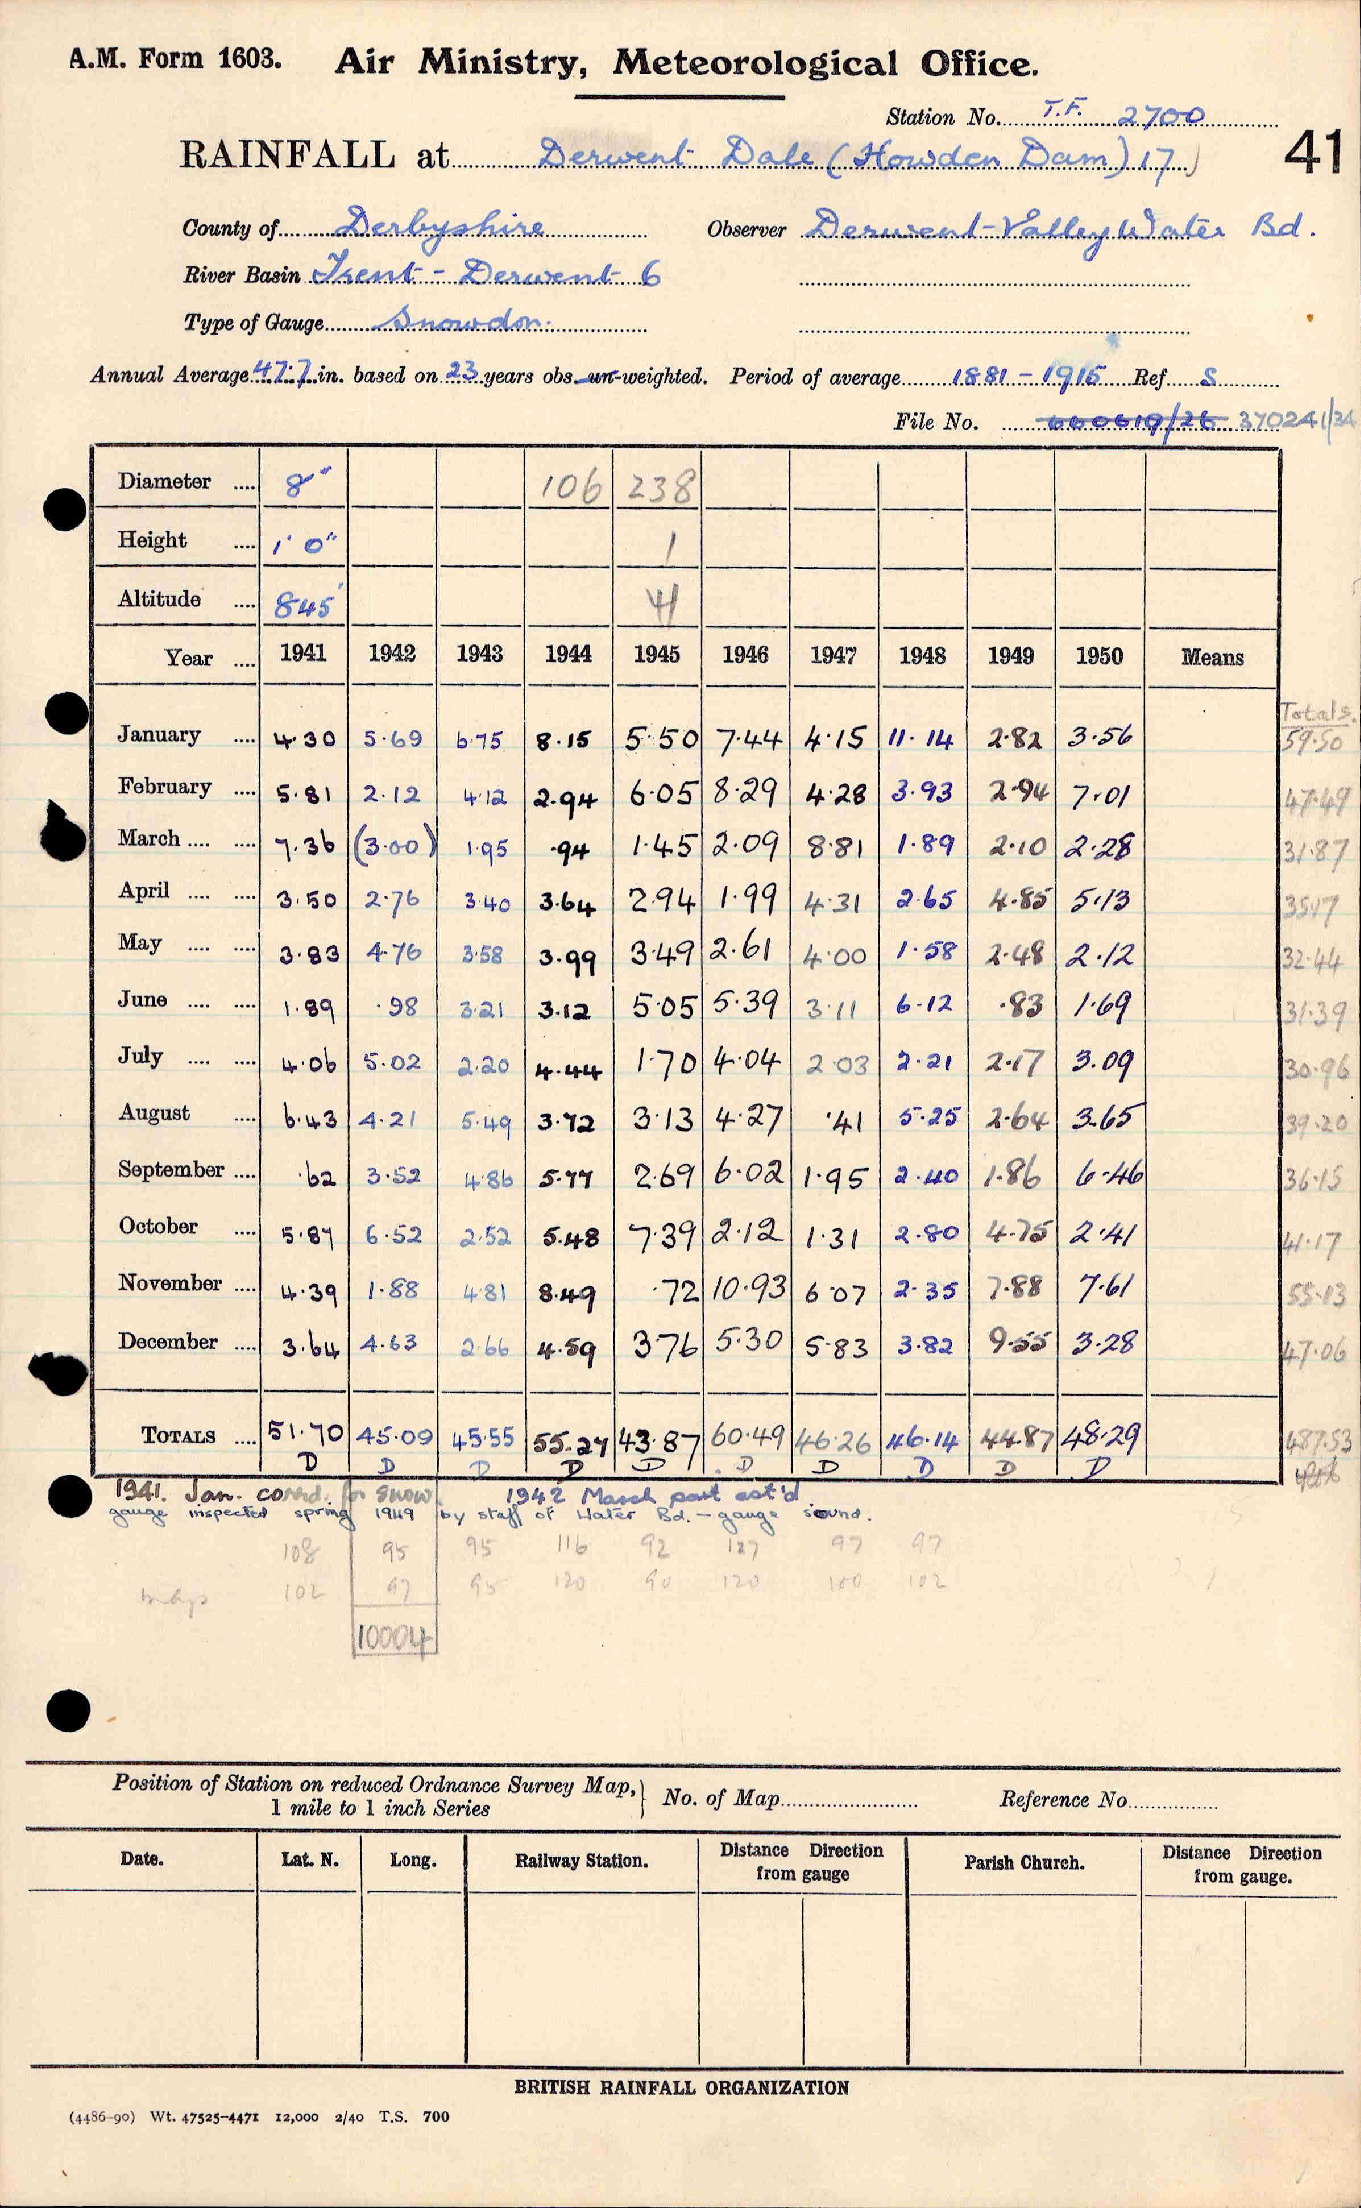 A.M. Form 1603. Air Ministry, Meteorological Office.
Station No. T.F. 2700
RAINFALL at Derwent Dale (Howden Dam) 17 41
County of Derbyshire Observer Derwent-Valley Water Bd.
River Basin Trent - Derwent 6
Type of Gauge Snowdon.
Annual Average 47.7 in. based on 23 years obs. un-weighted. Period of average 1881-1915 Ref. S
File No. 660619/26 370241/34
Diameter .... 8" 106 238
Height .... 1' 0" 1
Altitude .... 845' 41
Year .... 1941 1942 1943 1944 1945 1946 1947 1948 1949 1950 Means
Totals.
January .... 4.30 5.69 6.75 8.15 5.50 7.44 4.15 11.14 2.82 3.56 59.50
February .... 5.81 2.12 4.12 2.94 6.05 8.29 4.28 3.93 2.94 7.01 47.49
March .... .... 7.36 (3.00) 1.95 .94 1.45 2.09 8.81 1.89 2.10 2.28 31.87
April .... .... 3.50 2.76 3.40 3.64 2.94 1.99 4.31 2.65 4.85 5.13 35.17
May .... .... 3.83 4.76 3.58 3.99 3.49 2.61 4.00 1.58 2.48 2.12 32.44
June .... .... 1.89 .98 3.21 3.12 5.05 5.39 3.11 6.12 .83 1.69 31.39
July .... .... 4.06 5.02 2.20 4.44 1.70 4.04 2.03 2.21 2.17 3.09 30.96
August .... 6.43 4.21 5.49 3.72 3.13 4.27 .41 5.25 2.64 3.65 39.20
September .... .62 3.52 4.86 5.77 2.69 6.02 1.95 2.40 1.86 6.46 36.15
October .... 5.87 6.52 2.52 5.48 7.39 2.12 1.31 2.80 4.75 2.41 41.17
November .... 4.39 1.88 4.81 8.49 .72 10.93 6.07 2.35 7.88 7.61 55.13
December .... 3.64 4.63 2.66 4.59 3.76 5.30 5.83 3.82 9.55 3.28 47.06
TOTALS .... 51.70 45.09 45.55 55.27 43.87 60.49 46.26 46.14 44.87 48.29 487.53
D D D D D D D D D D
1941. Jan. corrd. for snow. 1942 March part est'd.
gauge inspected spring 1949 by staff of Water Bd. - gauge sound.
108 95 95 116 92 127 97 97
maps 102 97 95 120 90 120 100 102
10004
Position of Station on reduced Ordnance Survey Map, } No. of Map Reference No.
1 mile to 1 inch Series
Date. Lat. N. Long. Railway Station. Distance Direction from gauge Parish Church. Distance Direction from gauge.
BRITISH RAINFALL ORGANIZATION
(4486-90) Wt. 47525-4471 12,000 2/40 T.S. 700